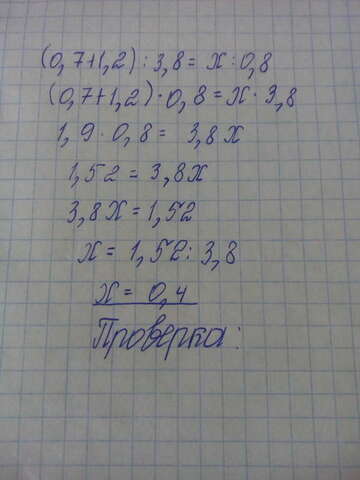 (0,7+1,2) : 3,8 = x : 0,8
(0,7+1,2) · 0,8 = x · 3,8
1,9 · 0,8 = 3,8x
1,52 = 3,8x
3,8x = 1,52
x = 1,52 : 3,8
x = 0,4
Проверка: